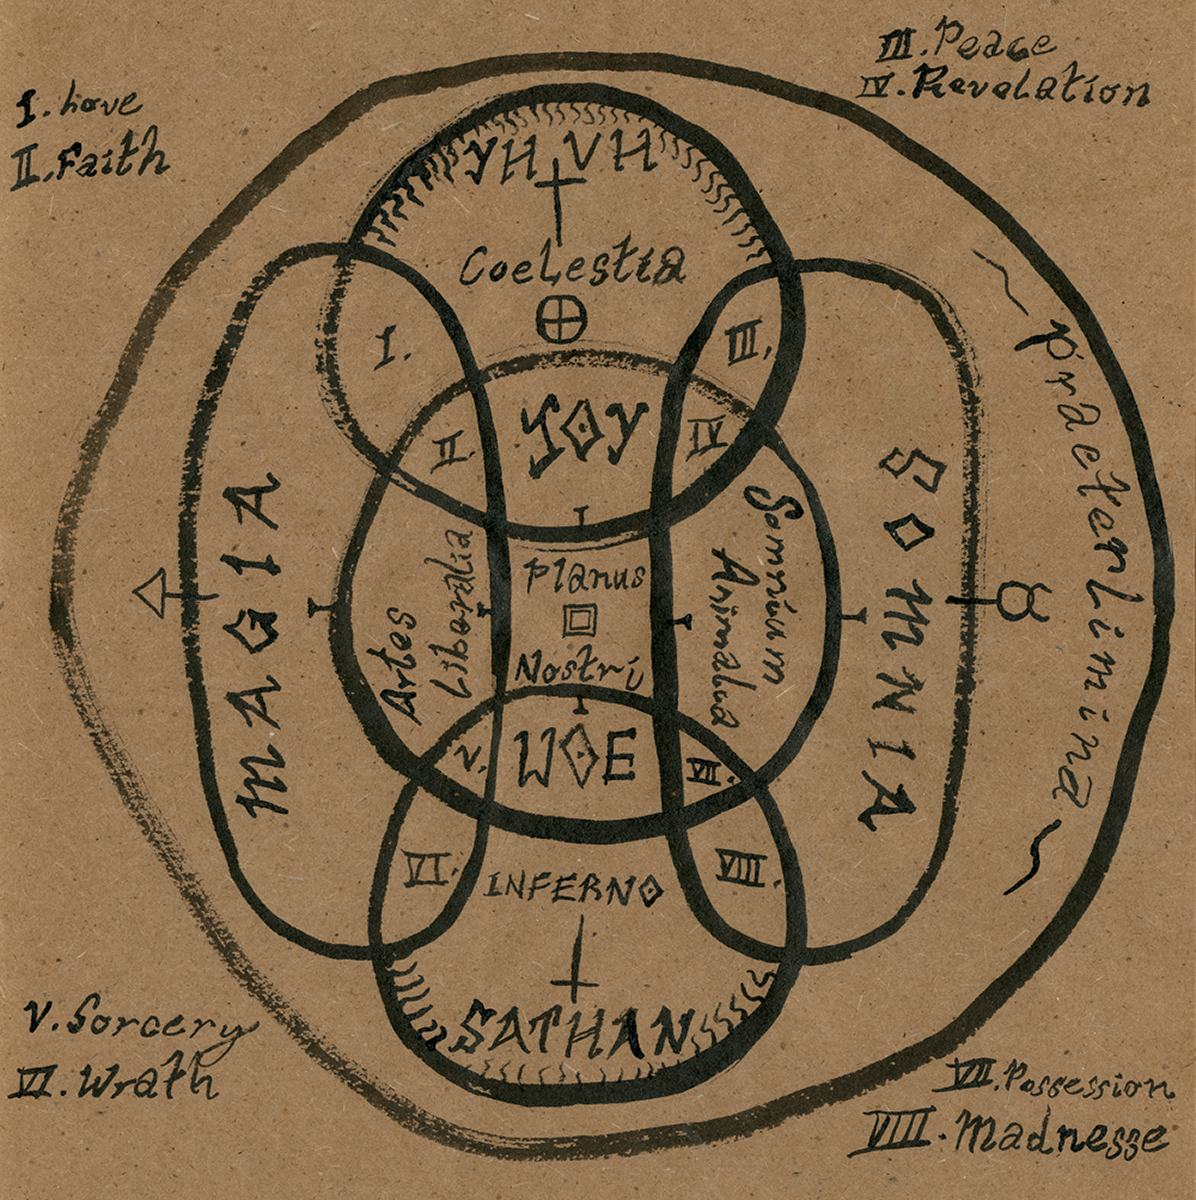 I. Love
II. Faith
III. Peace
IV. Revelation
YHVH
Coelestia
I.
III.
JOY
II.
IV
MAGIA
Artes
Liberalia
Planus
Nostri
Somnium
Animalua
SOMNIA
~ praeterlimina ~
V.
WOE
VII.
VI.
VIII.
INFERNO
SATHAN
V. Sorcery
VI. Wrath
VII. Possession
VIII. Madnesse